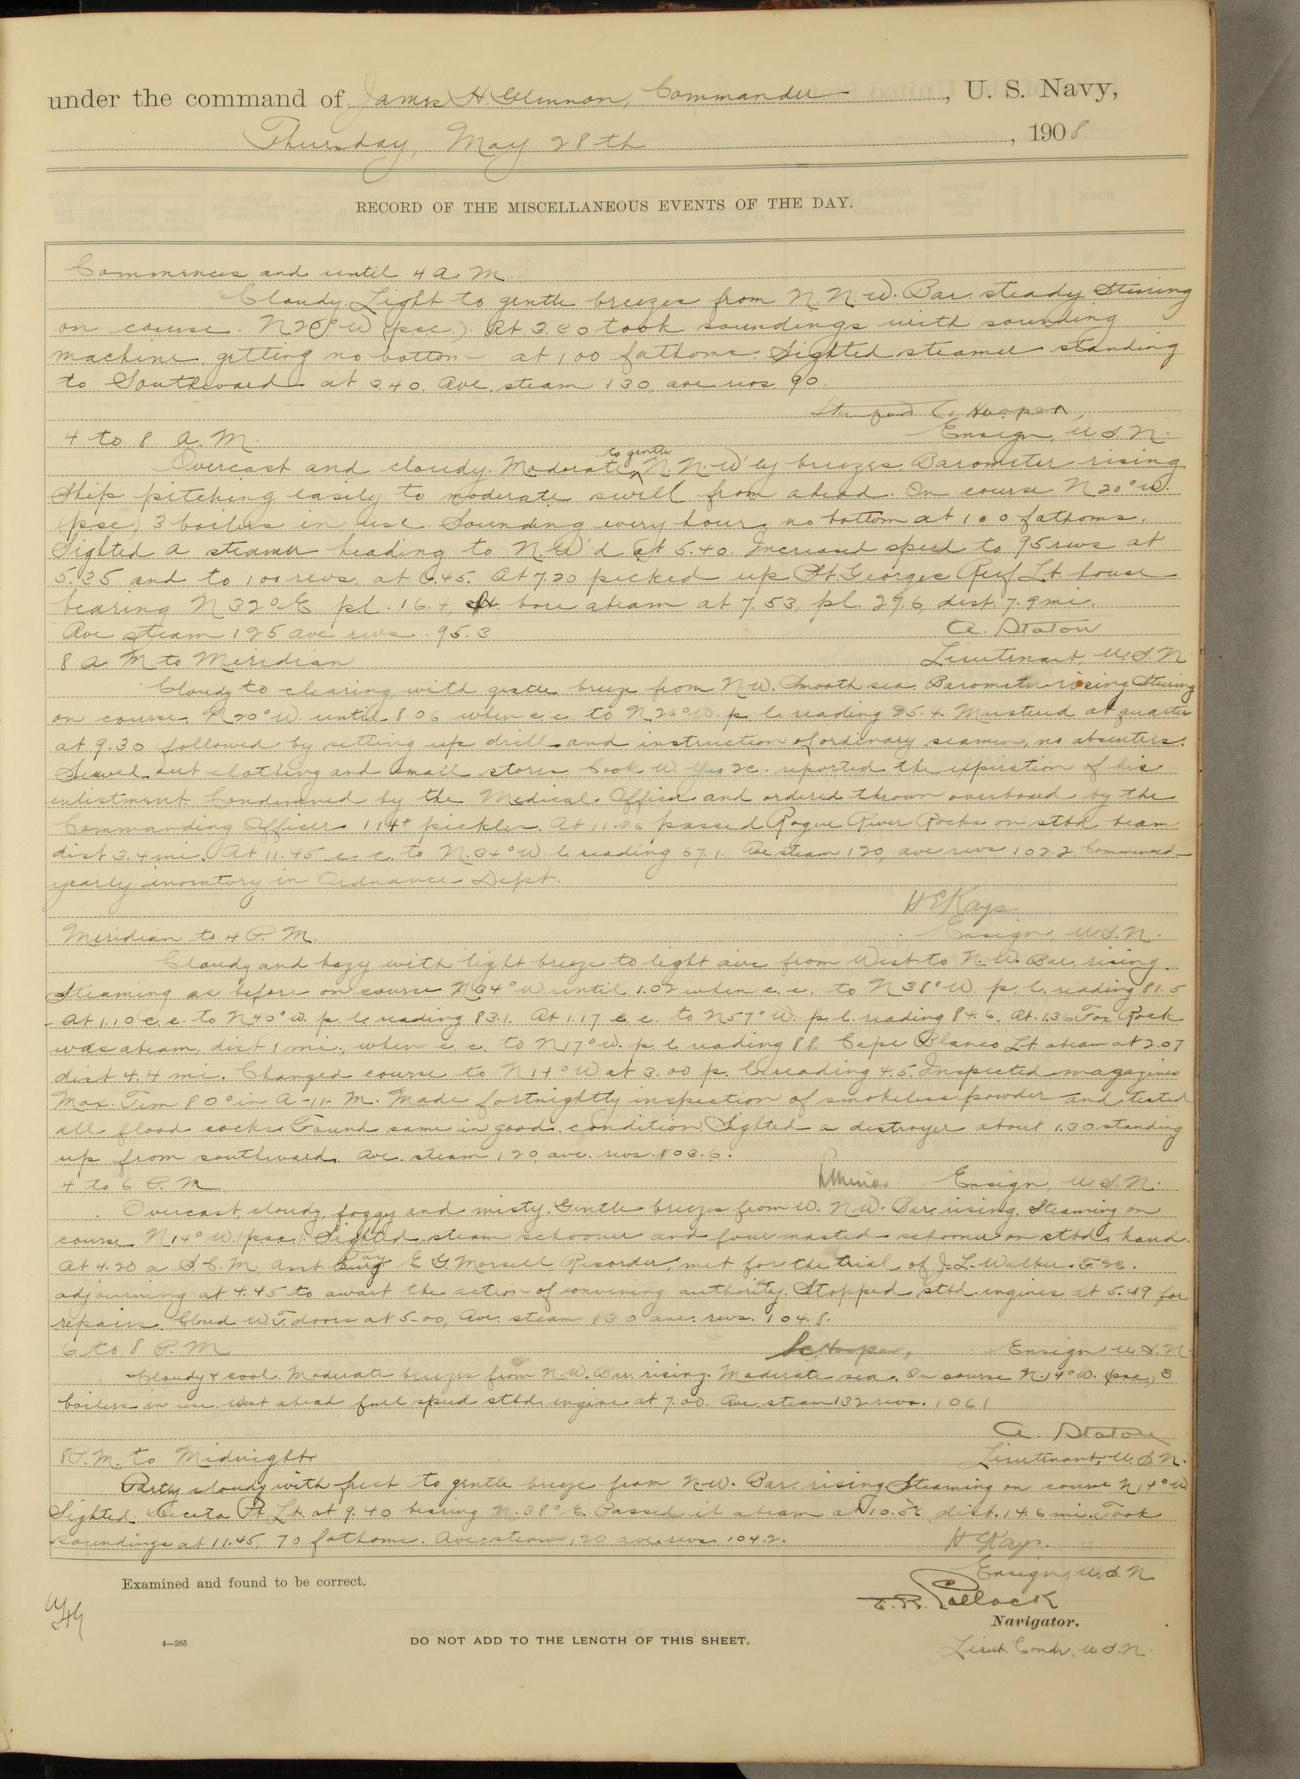 under the command of James H. Glennon, Commander, U. S. Navy,
Thursday, May 28th, 1908
RECORD OF THE MISCELLANEOUS EVENTS OF THE DAY.
Commences and until 4 A. M.
Cloudy. Light to gentle breezes from N. N. W. Bar. steady. Steering
on course N 20° W (psc.) At 3.00 took soundings with sounding
machine getting no bottom at 100 fathoms. Sighted steamer standing
to Southward at 3.40. Ave. steam 130, ave revs 90.
Stanford C. Hooper,
Ensign, U.S.N.
4 to 8 A. M.
Overcast and cloudy. Moderate to gentle N. N. W'ly breezes Barometer rising
Ship pitching easily to moderate swell from ahead. On course N 20° W.
(psc) 3 boilers in use. Sounding every hour, no bottom at 100 fathoms.
Sighted a steamer heading to N. W'd at 5.40. Increased speed to 95 revs at
5.35 and to 100 revs. at 6.45. At 7.20 picked up St. Georges Reef Lt. house
bearing N 32° E pl. 16.4, bore abeam at 7.53, pl. 29.6, dist. 7.9 mi.
Ave steam 125 ave revs. 95.3
A. Staton
Lieutenant, U.S.N.
8 A M to Meridian
Cloudy to clearing with gentle breeze from N.W. Smooth sea. Barometer rising Steering
on course N 20° W. until 8.06 when c. c. to N 26° W. p. l. reading 35.4. Mustered at quarters
at 9.30 followed by setting up drill and instruction of ordinary seamen, no absentees.
Served out clothing and small stores. Cook W. 2c. reported the expiration of his
enlistment. Condemned by the Medical Officer and ordered thrown overboard by the
Commanding Officer 114# pickles. At 11.36 passed Rogue River Rocks on stbd. beam
dist 3.4 mi. At 11.45 c. c. to N. 34° W l. reading 67.1. Ave steam 120, ave revs 102.2. Commenced
yearly inventory in Ordnance Dept.
H E Kays
Ensign, U.S.N.
Meridian to 4 P. M.
Cloudy and hazy with light breeze to light airs from West to N. W. Bar. rising.
Steaming as before on course N 34° W until 1.02 when c. c. to N 38° W. p. l. reading 81.5
At 1.10 c. c. to N 40° W. p. l. reading 83.1. At 1.17 c. c. to N 57° W. p. l. reading 84.6. At 1.36 Fox Rock
was abeam, dist 1 mi., when c. c. to N 17° W. p. l. reading 88. Cape Blanco Lt abeam at 2.07
dist 4.4 mi. Changed course to N 14° W at 3.00 p. l. reading 4.5. Inspected magazines
Max. Tem 80° in A-11-M. Made fortnightly inspection of smokeless powder and tested
all flood cocks. Found same in good condition. Sighted a destroyer about 1.30 standing
up from southward. Ave. steam 120, ave. revs. 103.6.
Ensign, U.S.N.
4 to 6 P. M.
Overcast, cloudy, foggy and misty. Gentle breezes from W. N. W. Bar. rising. Steaming on
course N 14° W (psc). Sighted steam schooner and four masted schooner on stbd. hand.
At 4.20 a S. C. M. Asst Pay E G Morsell Recorder, met for the trial of J. L. Walker. F2c.
adjourning at 4.45 to await the action of convening authority. Stopped stbd. engines at 5.49 for
repairs. Closed W. T. doors at 5.00, Ave. steam 130 ave. revs. 104.8.
S C Hooper, Ensign U.S.N.
6 to 8 P. M.
Cloudy & cool. Moderate breezes from N. W. Bar. rising. Moderate sea. On course N. 14° W. (psc.) 3
boilers in use. Went ahead full speed stbd. engine at 7.00. Ave. steam 132 revs. 106.1
A. Staton
Lieutenant, U.S.N.
8 P. M. to Midnight.
Partly cloudy with fresh to gentle breeze from N. W. Bar. rising Steaming on course N 14° W.
Sighted Heceta Pt. Lt. at 9.40 bearing N. 38° E. Passed it abeam at dist. 14.6 mi. Took
soundings at 11.45, 70 fathoms. Ave. steam 120 ave. revs 104.2.
H E Kays.
Ensign, U.S.N.
Examined and found to be correct.
E. R. Pollock
Navigator.
Lieut. Comdr, U.S.N.
4—265
DO NOT ADD TO THE LENGTH OF THIS SHEET.